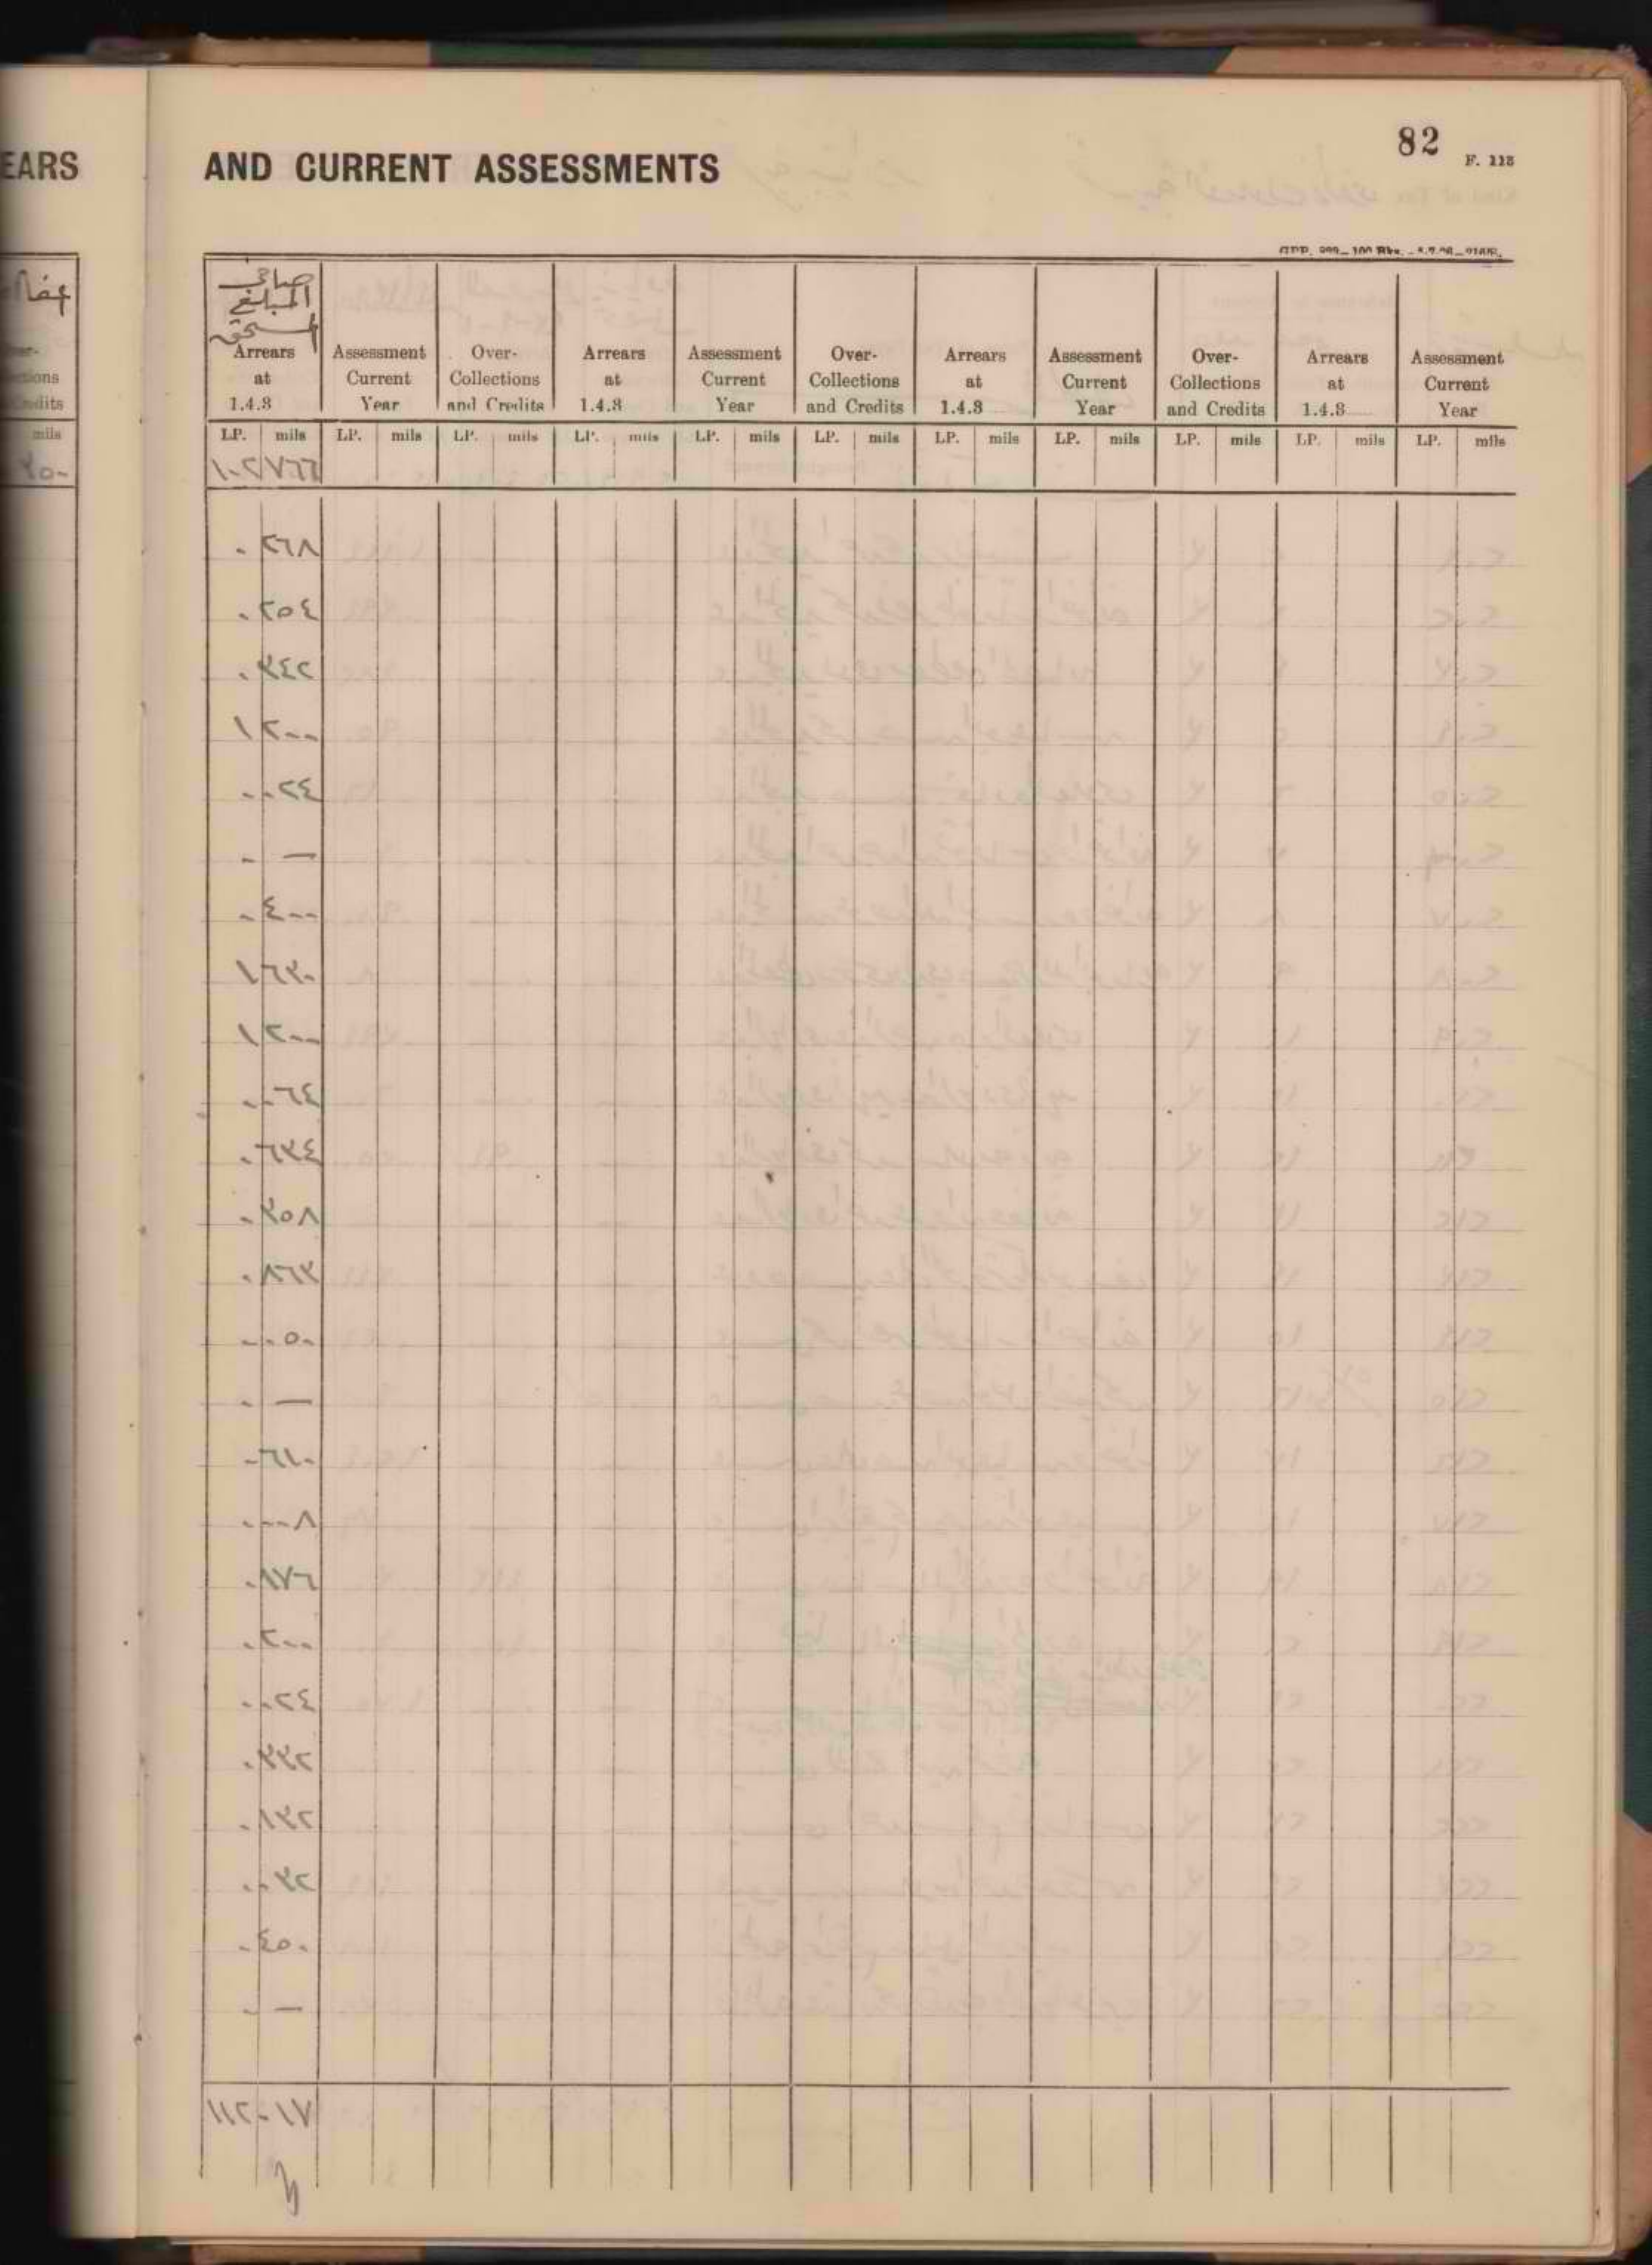 82
F. 118
EARS
AND CURRENT ASSESSMENTS
صافي
المبلغ
المستحق
Arrears at 1.4.3 | Assessment Current Year | Over-Collections and Credits | Arrears at 1.4.3 | Assessment Current Year | Over-Collections and Credits | Arrears at 1.4.3 | Assessment Current Year | Over-Collections and Credits | Arrears at 1.4.3 | Assessment Current Year
LP. mils | LP. mils | LP. mils | LP. mils | LP. mils | LP. mils | LP. mils | LP. mils | LP. mils | LP. mils | LP. mils
١٠٢ ٧٦٦
٠ ٢٦٨
٠ ٢٥٤
٠ ٣٤٢
١ ٢٠٠
٠ ٠٢٤
٠ —
٠ ٤٠٠
١ ٦٣٠
١ ٢٠٠
٠ ٠٦٤
٠ ٦٣٤
٠ ٣٥٨
٠ ٨٦٣
٠ ٠٥٠
٠ —
٠ ٦١٠
٠ ٠٠٨
٠ ١٧٦
٠ ٢٠٠
٠ ٠٢٤
٠ ٣٣٢
٠ ١٣٢
٠ ٠٣٢
٠ ٤٥٠
٠ —
١١٢ ٠١٧